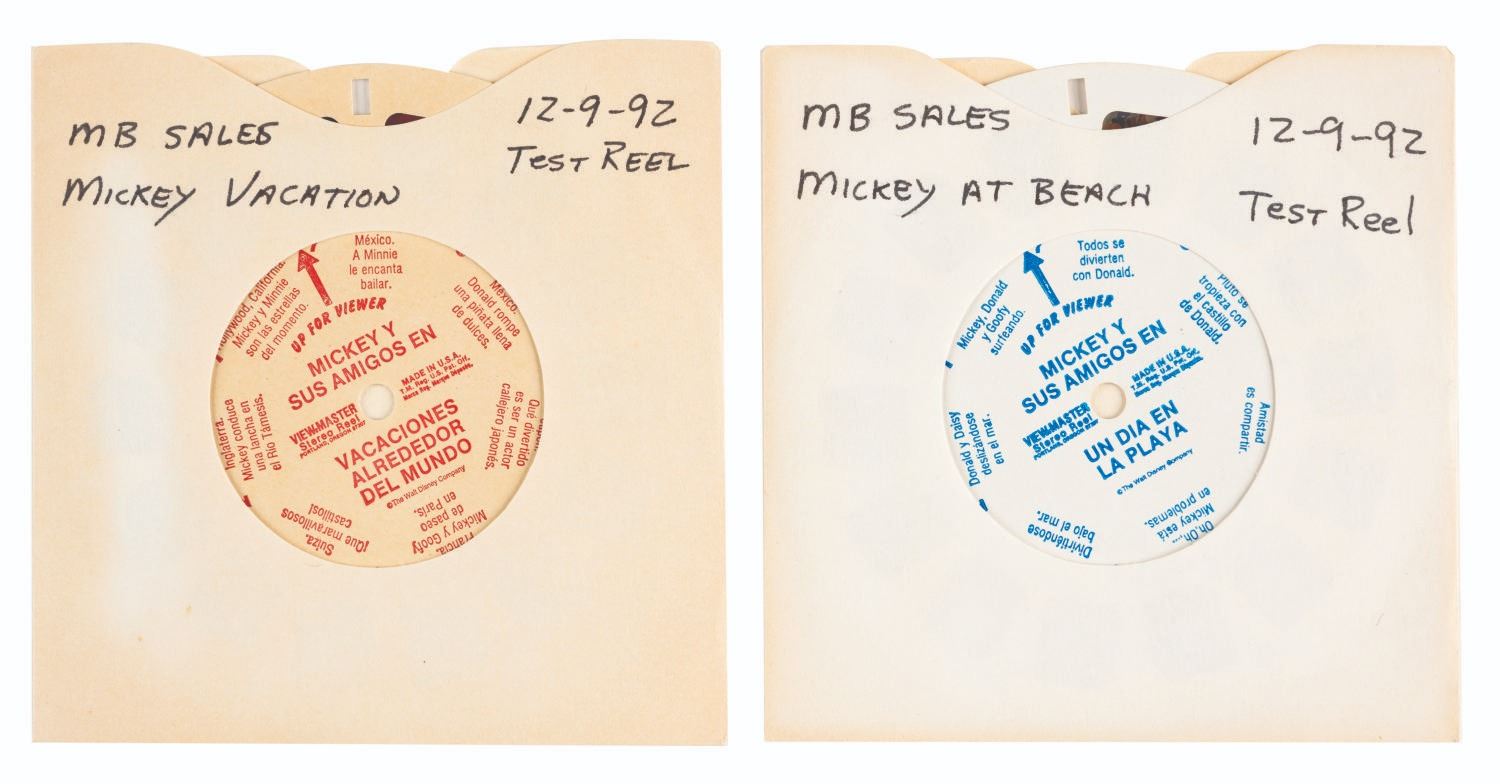 MB SALES
MICKEY VACATION
12-9-92
TEST REEL
México.
A Minnie
le encanta
bailar.
México.
Donald rompe
una piñata llena
de dulces.
Qué divertido
es ser un actor
callejero japonés.
Francia.
Mickey y Goofy
de paseo
en París.
Suiza.
¡Que maravillosos
castillos!
Inglaterra.
Mickey conduce
una lancha en
el Río Támesis.
Hollywood, California.
Mickey y Minnie
son las estrellas
del momento.
UP FOR VIEWER
MICKEY Y
SUS AMIGOS EN
MADE IN U.S.A.
T.M. Reg. U.S. Pat. Off.
Marca Reg. Marque Déposée.
VIEW-MASTER
Stereo Reel
PORTLAND, OREGON 97207
VACACIONES
ALREDEDOR
DEL MUNDO
©The Walt Disney Company
MB SALES
MICKEY AT BEACH
12-9-92
TEST Reel
Todos se
divierten
con Donald.
Pluto se
tropieza con
el castillo
de Donald.
Amistad
es compartir.
Oh, Oh,...
Mickey está
en problemas.
Divirtiéndose
bajo el mar.
Donald y Daisy
deslizándose
en el mar.
Mickey, Donald
y Goofy
surfeando.
UP FOR VIEWER
MICKEY Y
SUS AMIGOS EN
MADE IN U.S.A.
T.M. Reg. U.S. Pat. Off.
Marca Reg. Marque Déposée.
VIEW-MASTER
Stereo Reel
PORTLAND, OREGON 97207
UN DIA EN
LA PLAYA
©The Walt Disney Company